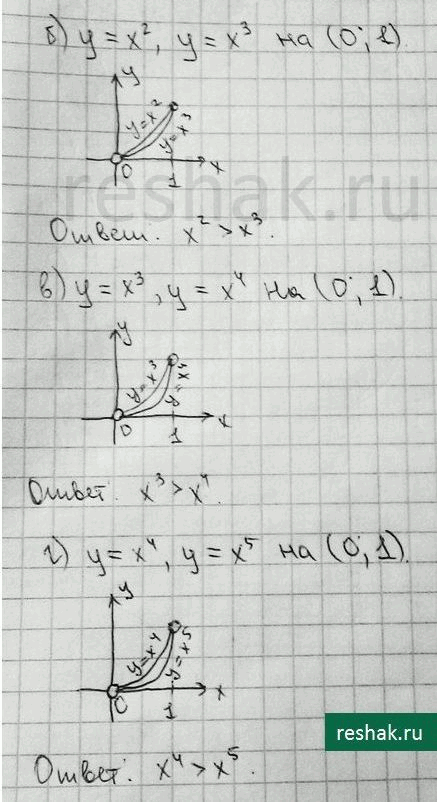 б) y = x², y = x³ на (0; 1)
y
y=x²
y=x³
0
1
x
reshak.ru
Ответ: x² > x³.
в) y = x³, y = x⁴ на (0; 1).
y
y=x³
y=x⁴
0
1
x
Ответ: x³ > x⁴.
г) y = x⁴, y = x⁵ на (0; 1).
y
y=x⁴
y=x⁵
0
1
x
reshak.ru
Ответ: x⁴ > x⁵.